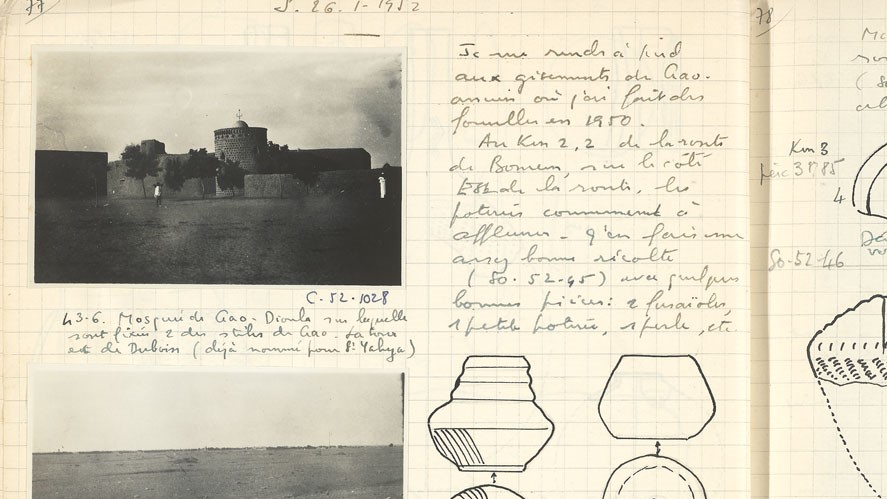 77
S. 26.1-1952
Je me rends à pied
aux gisements de Gao-
ancien où j'ai fait des
fouilles en 1950.
Au Km 2,2 de la route
de Bourem, sur le côté
Est de la route, les
poteries commencent à
affleurer - J'en fais une
assez bonne récolte
(SO-52-45) avec quelques
bonnes pièces: 2 fusaïoles,
1 petite poterie, 1 perle, etc.
C-52-1028
43-6. Mosquée de Gao-Dioula sur laquelle
sont fixées 2 des stèles de Gao. La tour
est de Dubois (déjà nommé pour Si Yahya)
78
Km 3
4
SO-52-46